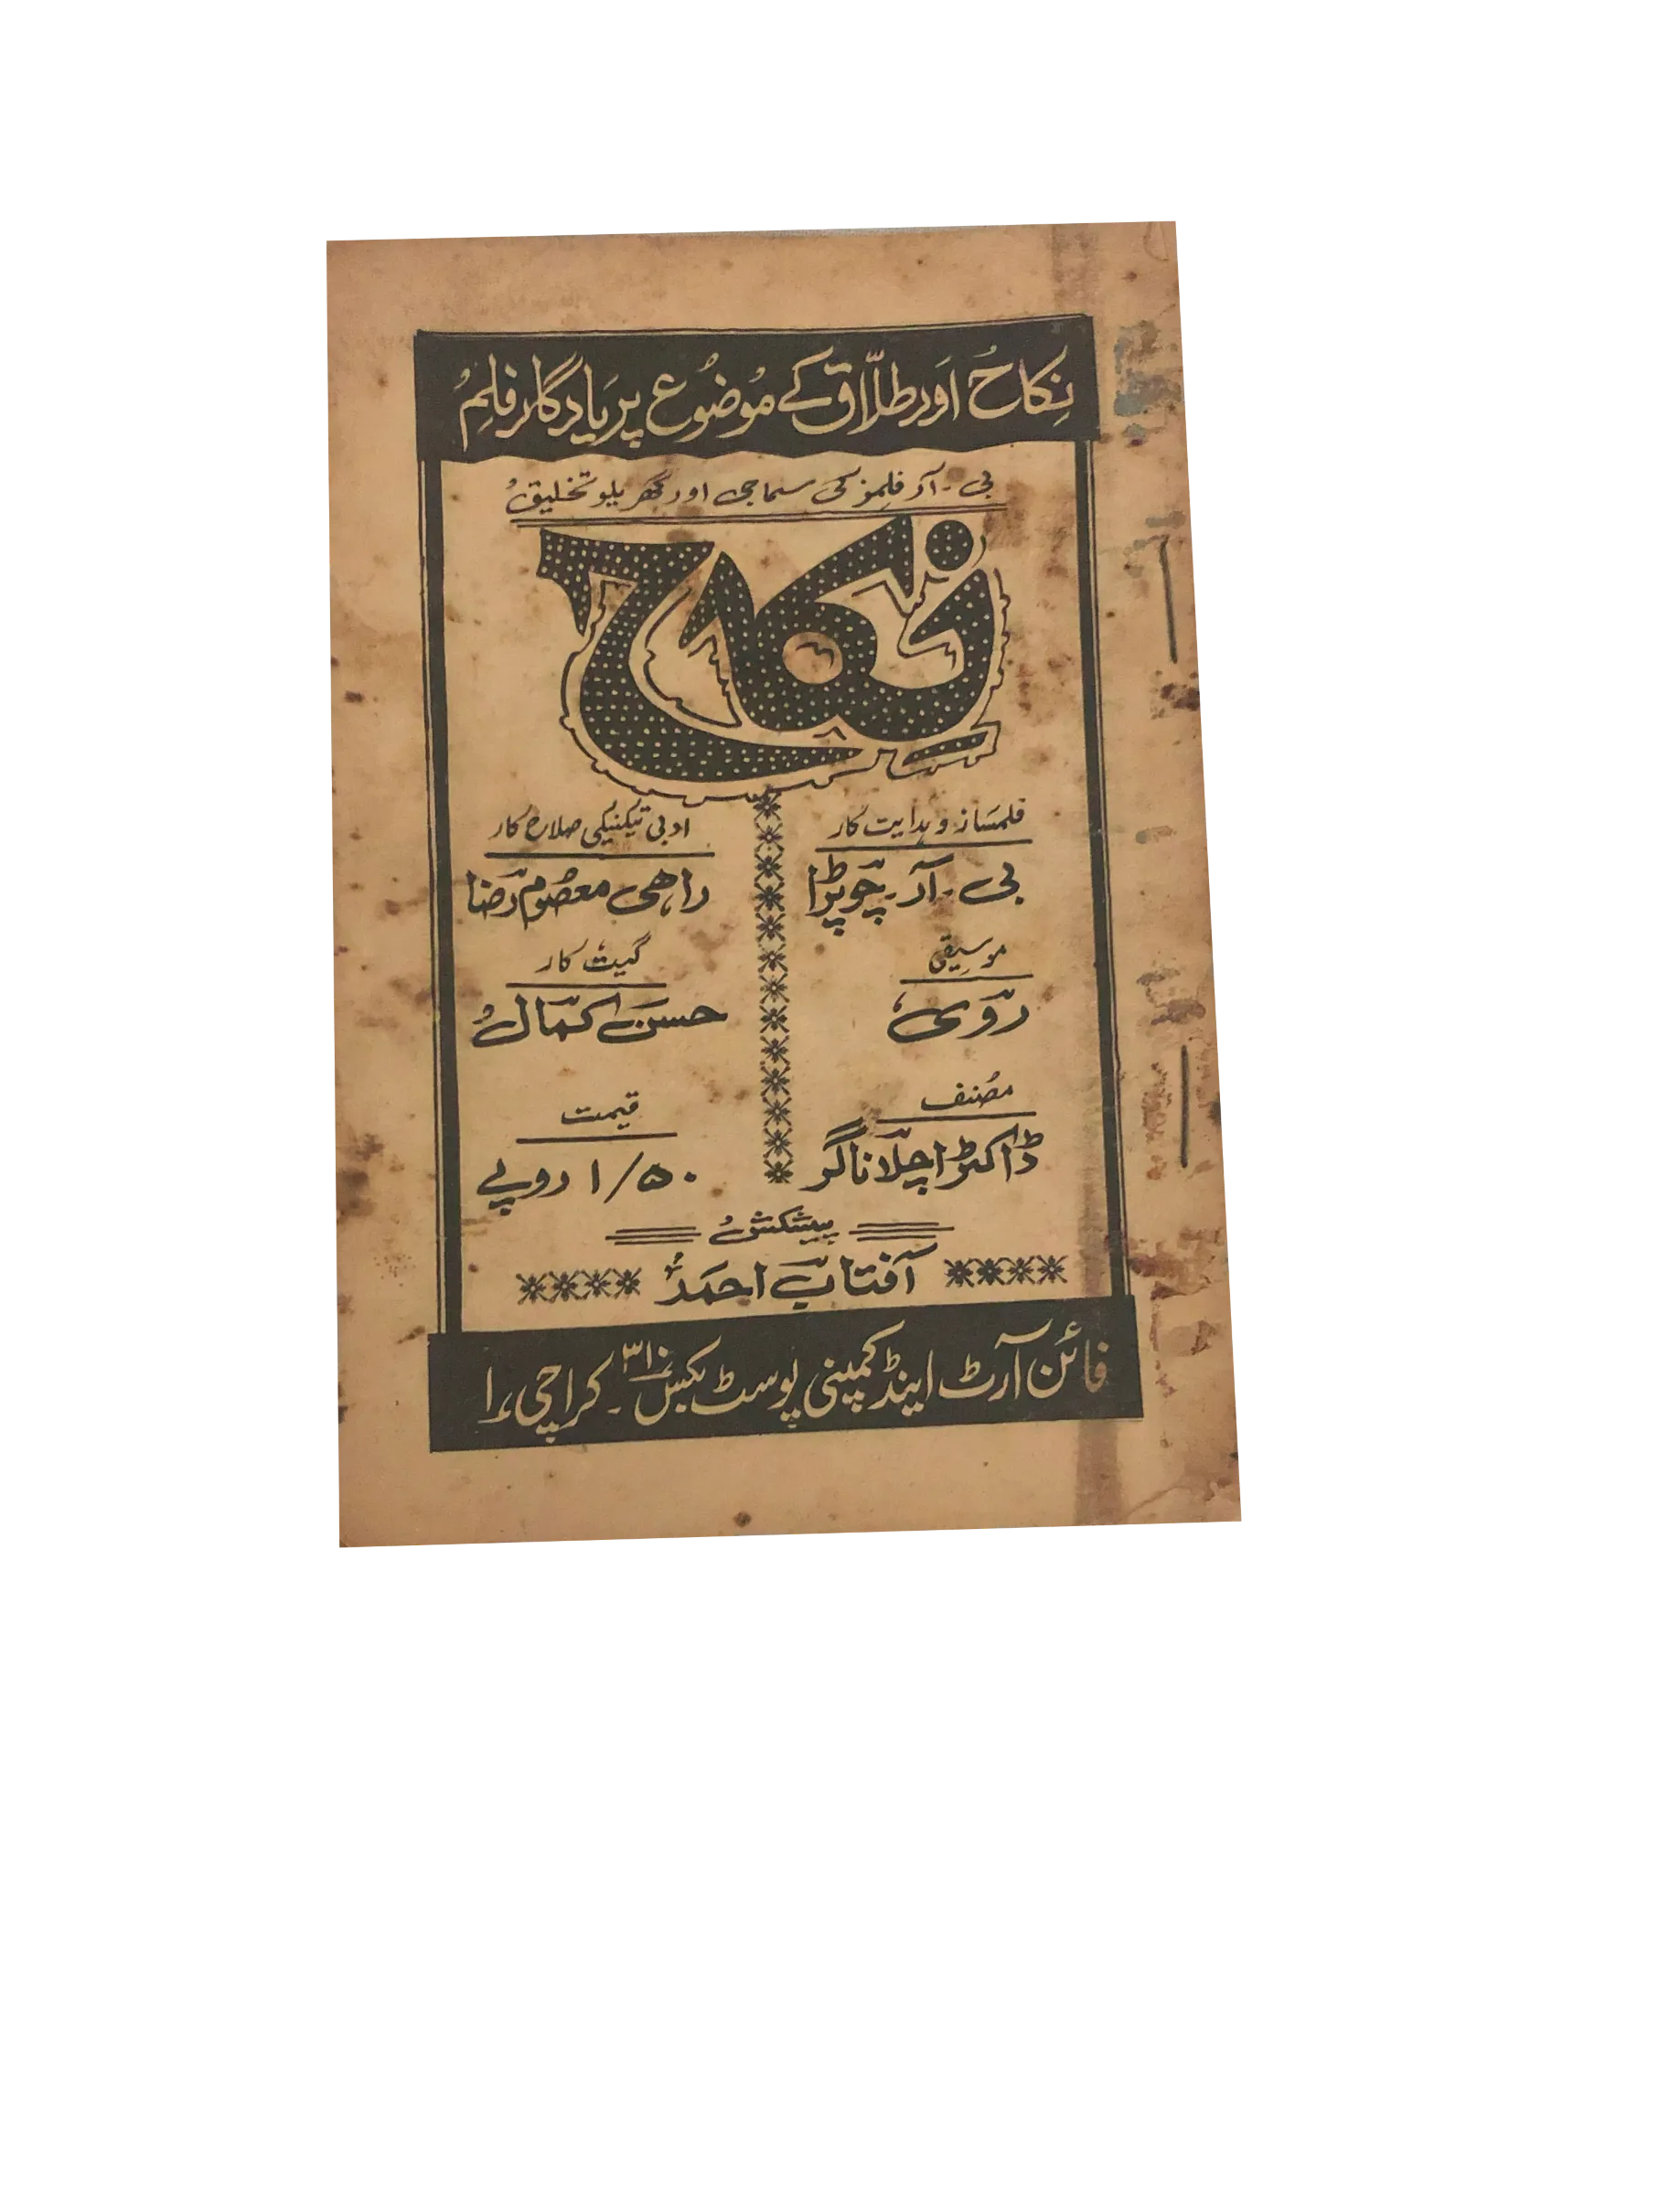 نِکاحُ اَور طلّاق کے مُوضُوع پر یَادگار فلِمُ
بی۔آر فلِمز کی سماجی اور گھریلو تخلیقُ
نکاح
فلمسَاز و ہدایت کار
بی۔آر۔چوپڑا
ادبی تیکنیکی صلاح کار
راہی معصُوم رَضا
موسِیقی
روّی
گیت کار
حسَن کمَالُ
مصُنف
ڈاکٹر اچلّا ناگر
قیمت
۱/۵۰ روپے
پیشکشُ
آفتابّ احمَد
فائن آرٹ اینڈ کمپنی پوسٹ بکس نمبر ۳۱۰۔ کراچی ۱